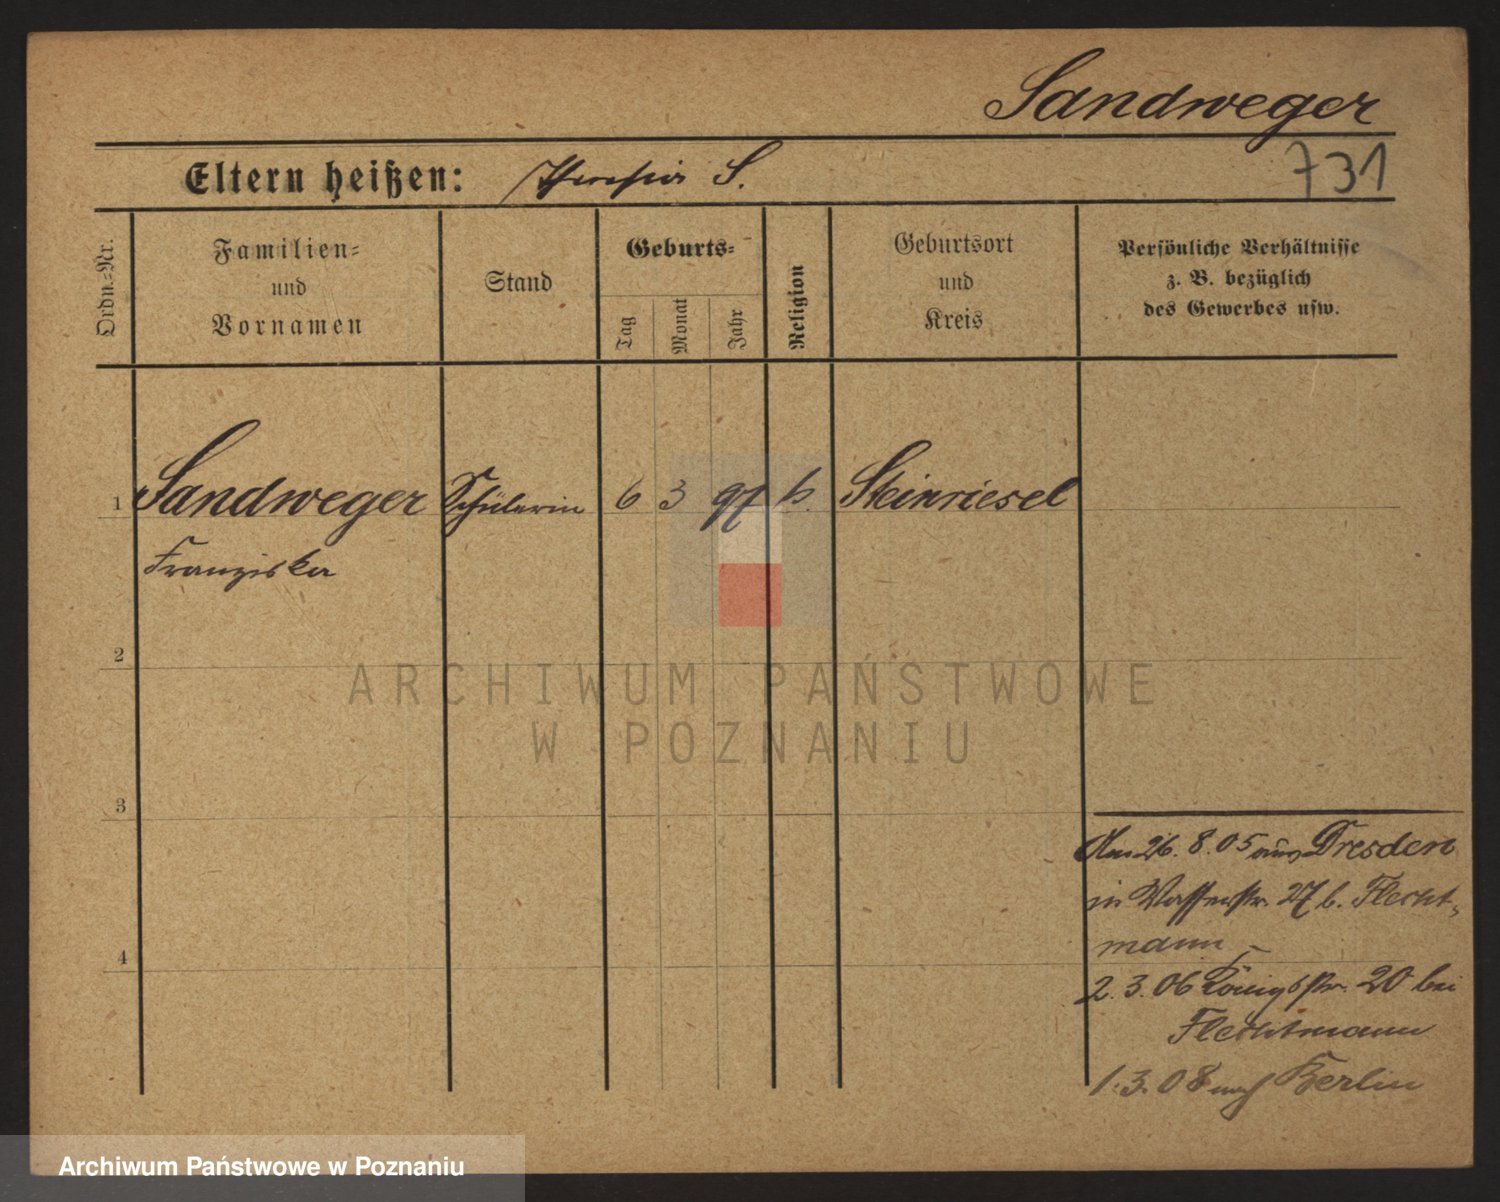 Sandweger
Eltern heißen: Theresia S.
731
Ordn.-Nr.
Familien-
und
Vornamen
Stand
Geburts-
Tag
Monat
Jahr
Religion
Geburtsort
und
Kreis
Persönliche Verhältnisse
z. B. bezüglich
des Gewerbes usw.
1 Sandweger Schülerin 6 3 97 k. Steinriesel
Franziska
2
3
4
Am 26. 8. 05 aus Dresden
in Wasserstr. 27 b. Flecht-
mann
2. 3. 06 Königstr. 20 bei
Flechtmann
1. 3. 08 nach Berlin
ARCHIWUM PAŃSTWOWE
W POZNANIU
Archiwum Państwowe w Poznaniu